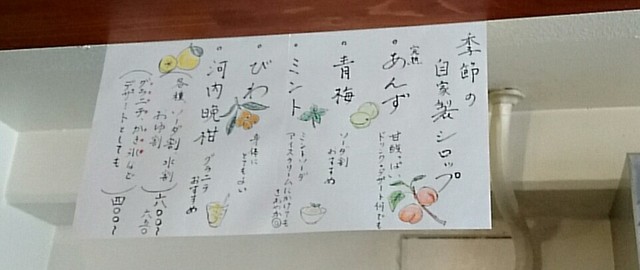 季節の
自家製シロップ
完熟
・あんず
甘酸っぱい
ドリンク・デザート何でも
・青梅
ソーダ割
おすすめ
・ミント
ミントソーダ
アイスクリームにかけても
さわやか
・びわ
身体に
とてもよい
・河内晩柑
グラニテ
おすすめ
(各種、ソーダ割 水割
お湯割
グラニテ、かき氷など
デザートとしても